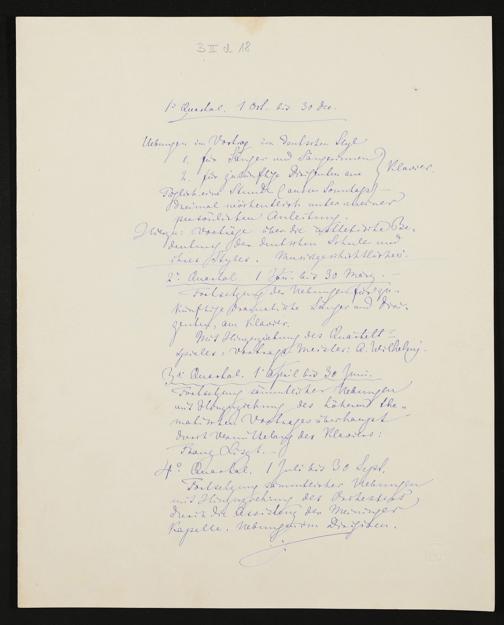 B II d 18
1º Quartal. 1 Oct. bis 30 Dec.
Uebungen im Vortrag im deutschen Styl
1. für Sänger und Sängerinnen
2. für zukünftige Dirigenten am } Klavier.
Täglich eine Stunde (ausser Sonntags) –
dreimal wöchentlich unter meiner
persönlichen Anleitung.
Hierzu: Vorträge über die ästhetische Be-
deutung der deutschen Schule und
ihres Styles. Musikgeschichtliches.
2º Quartal. 1 Jan. bis 30 März. –
Fortsetzung der Uebungen für zu-
künftige dramatische Sänger und Diri-
genten, am Klavier.
Mit Hinzuziehung des Quartett-
spieles: Vortrags Meister: A. Wilhelmj.
3º Quartal. 1 April bis 30 Juni.
Fortsetzung sämmtlicher Uebungen
mit Hinzuziehung des höheren the-
matischen Vortrages überhaupt
durch Vermittelung des Klavieres:
Franz Liszt. –
4º Quartal. 1 Juli bis 30 Sept.
Fortsetzung sämmtlicher Uebungen
mit Hinzuziehung des Orchesters,
durch die Assistenz der Meininger
Kapelle. Uebungen im Dirigiren.